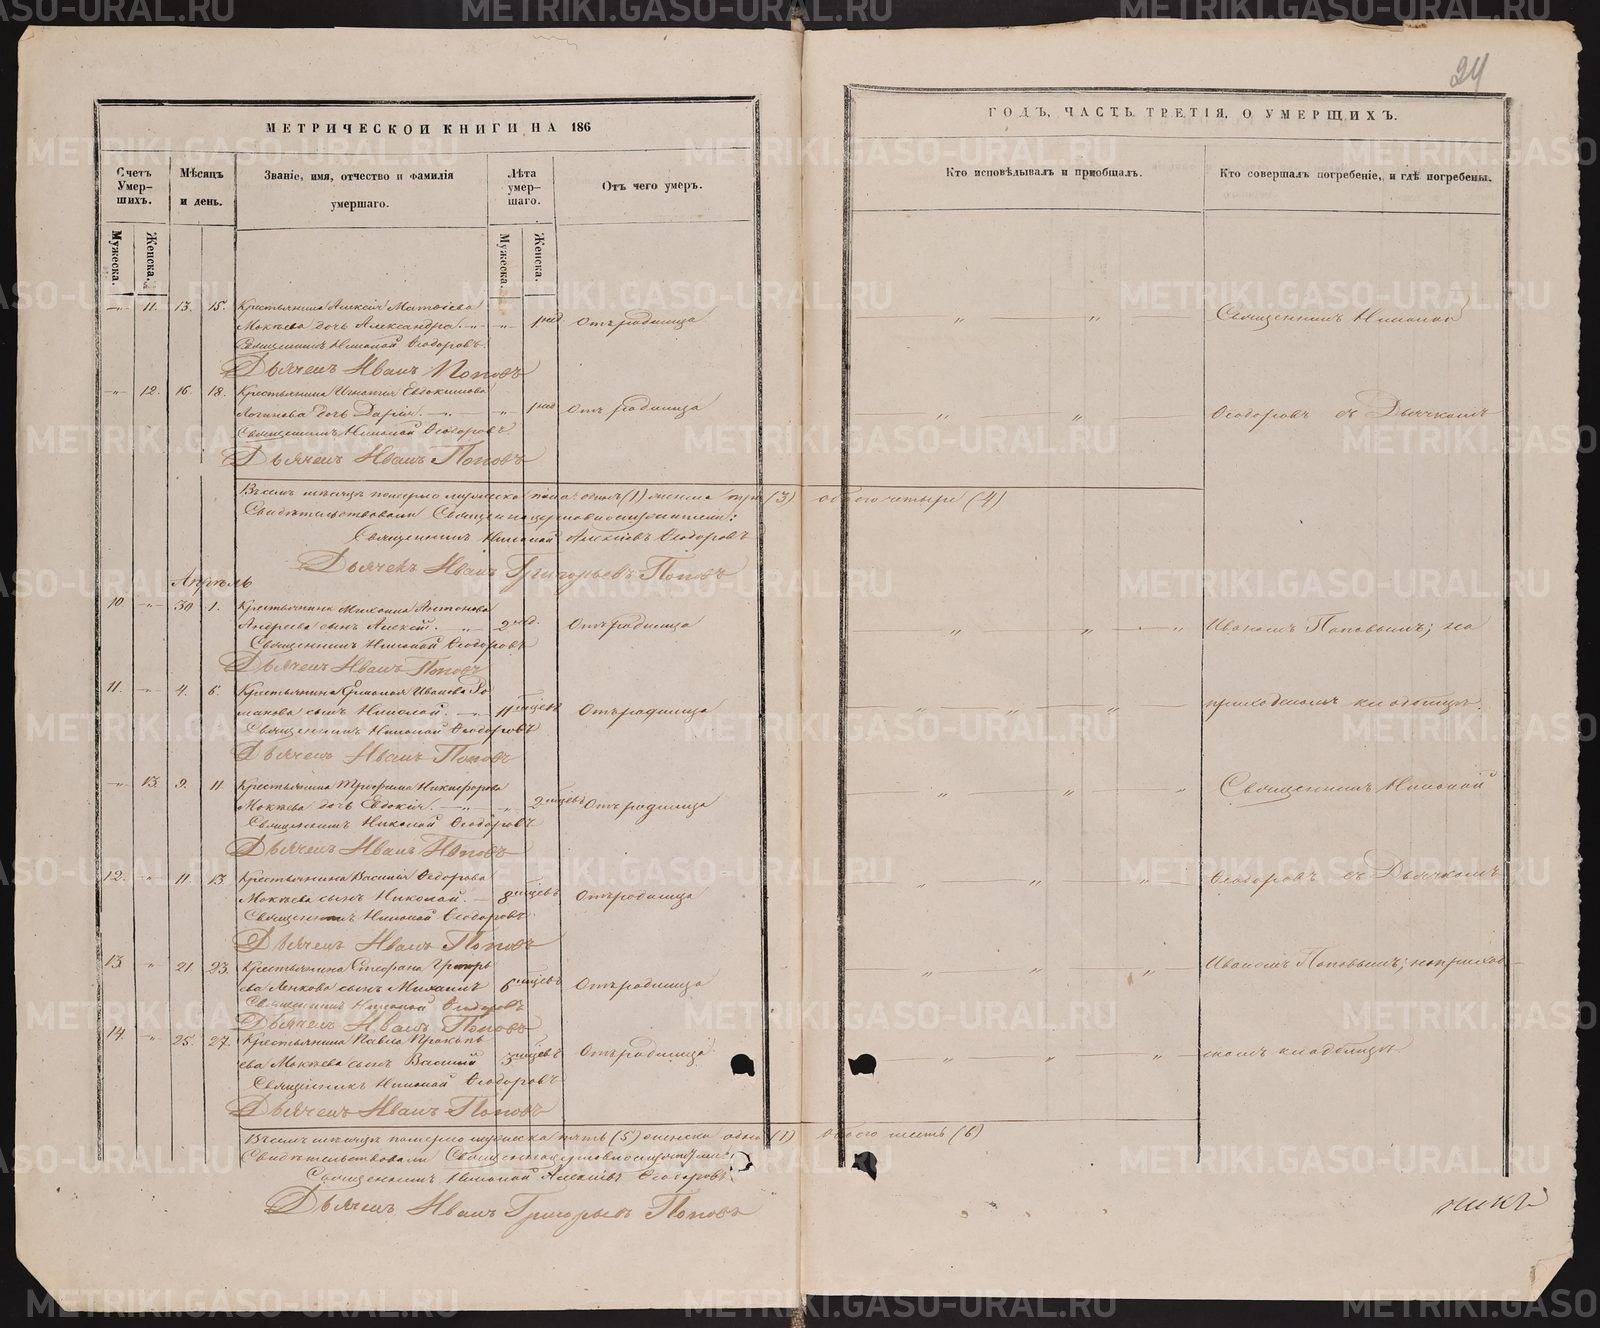 24
МЕТРИЧЕСКОЙ КНИГИ НА 186
ГОДЪ, ЧАСТЬ ТРЕТІЯ, О УМЕРШИХЪ.
Счетъ Умер-шихъ.
Мужеска.
Женска.
Мѣсяцъ и день.
Званіе, имя, отчество и фамилія умершаго.
Лѣта умер-шаго.
Мужеска.
Женска.
Отъ чего умеръ.
Кто исповѣдывалъ и пріобщалъ.
Кто совершалъ погребеніе, и гдѣ погребены.
11. 13. 15. Крестьянина Алексія Матѳіева
дочь Александра. 1 нед Отъ родимца
Священникъ Николай Ѳеодоровъ
Дьячекъ Иванъ Поповъ
12. 16. 18. Крестьянина Игнатія Евдокимова
Логинова дочь Дарія. 1 нед Отъ родимца
Священникъ Николай Ѳеодоровъ
Дьячекъ Иванъ Поповъ
Въ семъ мѣсяцѣ померло мужеска пола одинъ (1) женска три (3) обоего четыре (4)
Свидѣтельствовали Священноцерковнослужители:
Священникъ Николай Алексіевъ Ѳеодоровъ
Дьячекъ Иванъ Григорьевъ Поповъ
Апрѣль
10. 30 1. Крестьянина Михаила Антонова
Андреева сынъ Алексій. 2 нед. Отъ родимца
Священникъ Николай Ѳеодоровъ
Дьячекъ Иванъ Поповъ
11. 4. 6. Крестьянина Ермолая Иванова Ро
манова сынъ Николай. 11 мѣсяцевъ Отъ родимца
Священникъ Николай Ѳеодоровъ
Дьячекъ Иванъ Поповъ
13. 9. 11. Крестьянина Трофима Никифорова
дочь Евдокія. 2 мѣсяцевъ Отъ родимца
Священникъ Николай Ѳеодоровъ
Дьячекъ Иванъ Поповъ
12. 11. 13. Крестьянина Василія Ѳедорова
сынъ Николай. 8 мѣсяцевъ Отъ родимца
Священникъ Николай Ѳеодоровъ
Дьячекъ Иванъ Поповъ
13. 21 23. Крестьянина Стефана Григорь
ева сынъ Михаилъ 6 мѣсяцевъ Отъ родимца
Священникъ Николай Ѳеодоровъ
Дьячекъ Иванъ Поповъ
14. 25. 27. Крестьянина Павла Прокопь
ева сынъ Василій 3 мѣсяцевъ Отъ родимца
Священникъ Николай Ѳеодоровъ
Дьячекъ Иванъ Поповъ
Въ семъ мѣсяцѣ померло мужеска пять (5) женска одна (1) обоего шесть (6)
Свидѣтельствовали Священноцерковнослужители:
Священникъ Николай Алексіевъ Ѳеодоровъ
Дьячекъ Иванъ Григорьевъ Поповъ
Священникъ Николай
Ѳеодоровъ съ Дьячкомъ
Иваномъ Поповымъ; на
приходскомъ кладбищѣ.
Священникъ Николай
Ѳеодоровъ съ Дьячкомъ
Иваномъ Поповымъ; на приход
скомъ кладбищѣ
никъ
METRIKI.GASO-URAL.RU